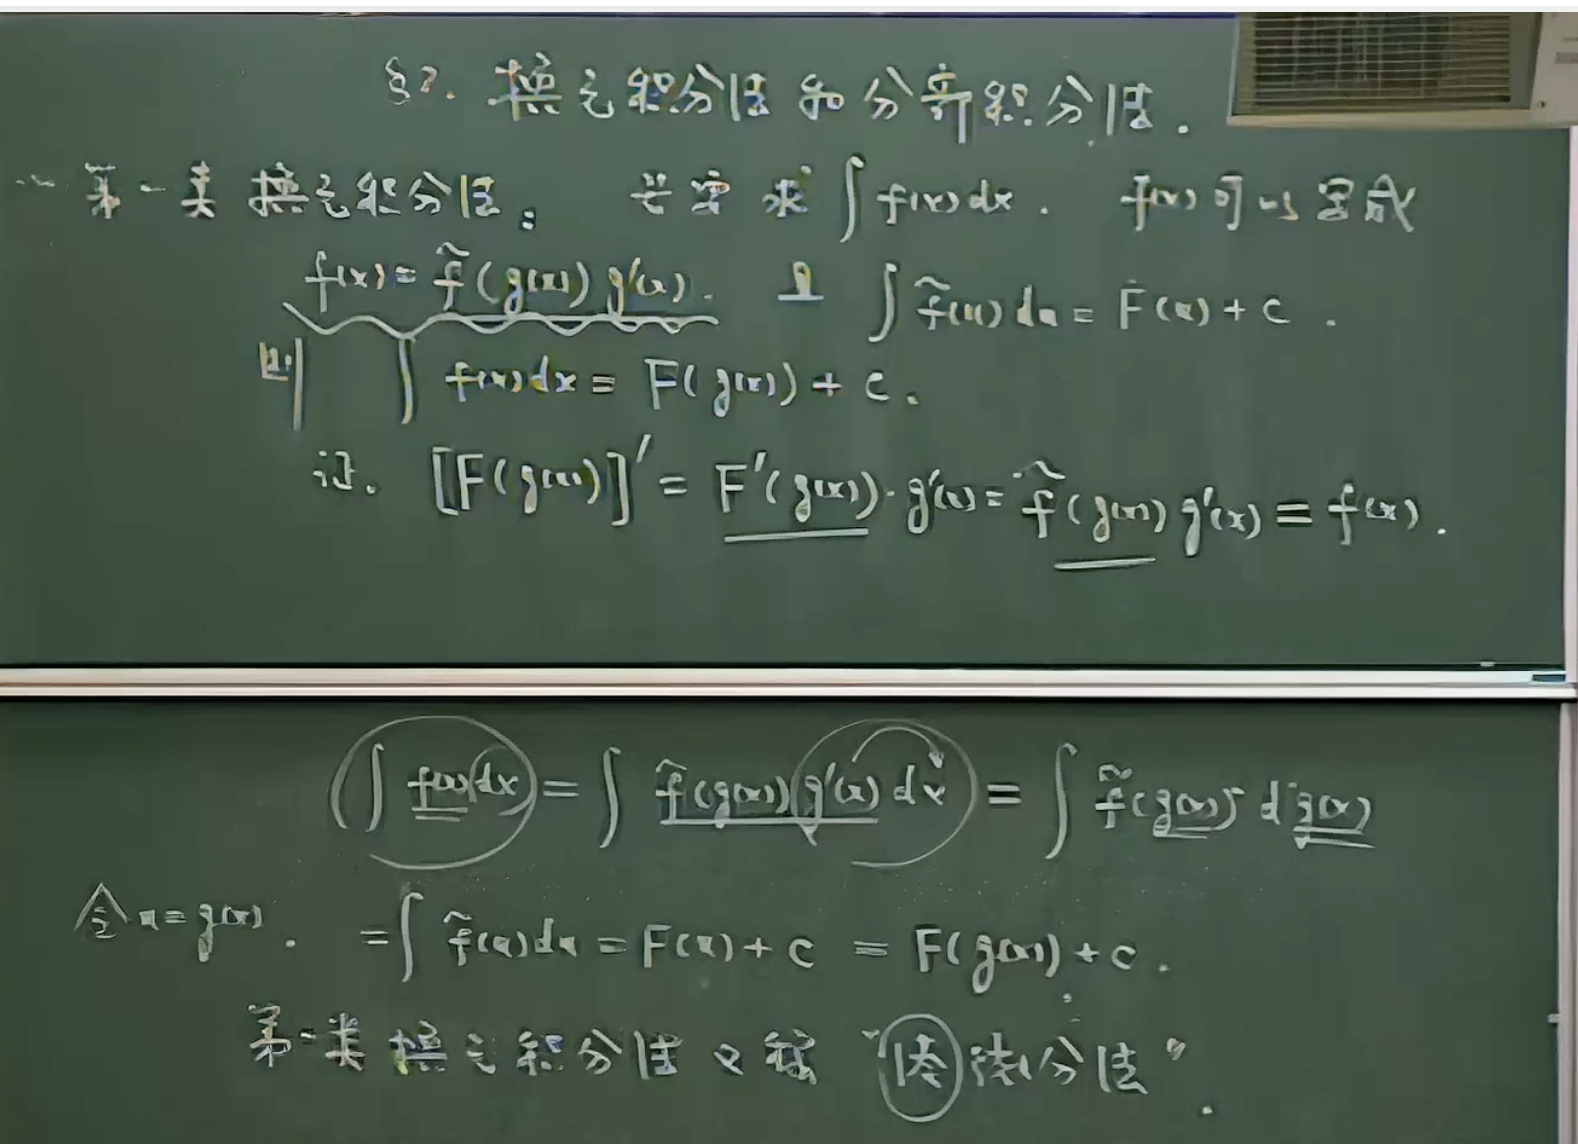 §2. 换元积分法和分部积分法.
一. 第一类换元积分法: 若要求 ∫ f(x) dx. f(x) 可以写成
f(x) = f̃(g(x)) g'(x). 且 ∫ f̃(u) du = F(u) + C.
则 ∫ f(x) dx = F(g(x)) + C.
证. [F(g(x))]' = F'(g(x)) · g'(x) = f̃(g(x)) g'(x) = f(x).
∫ f(x) dx = ∫ f̃(g(x)) g'(x) dx = ∫ f̃(g(x)) d g(x)
令 u = g(x). = ∫ f̃(u) du = F(u) + C = F(g(x)) + C.
第一类换元积分法又称 "凑微分法".